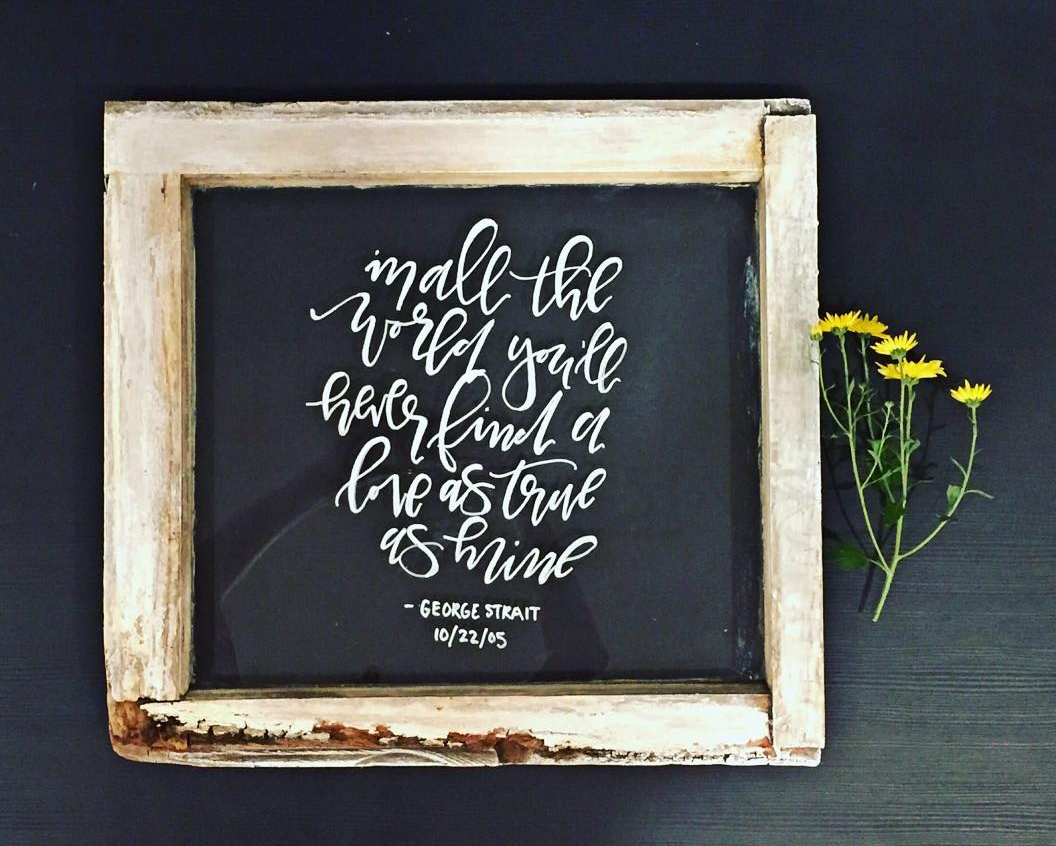 in all the
world you'll
never find a
love as true
as mine
- GEORGE STRAIT
10/22/05